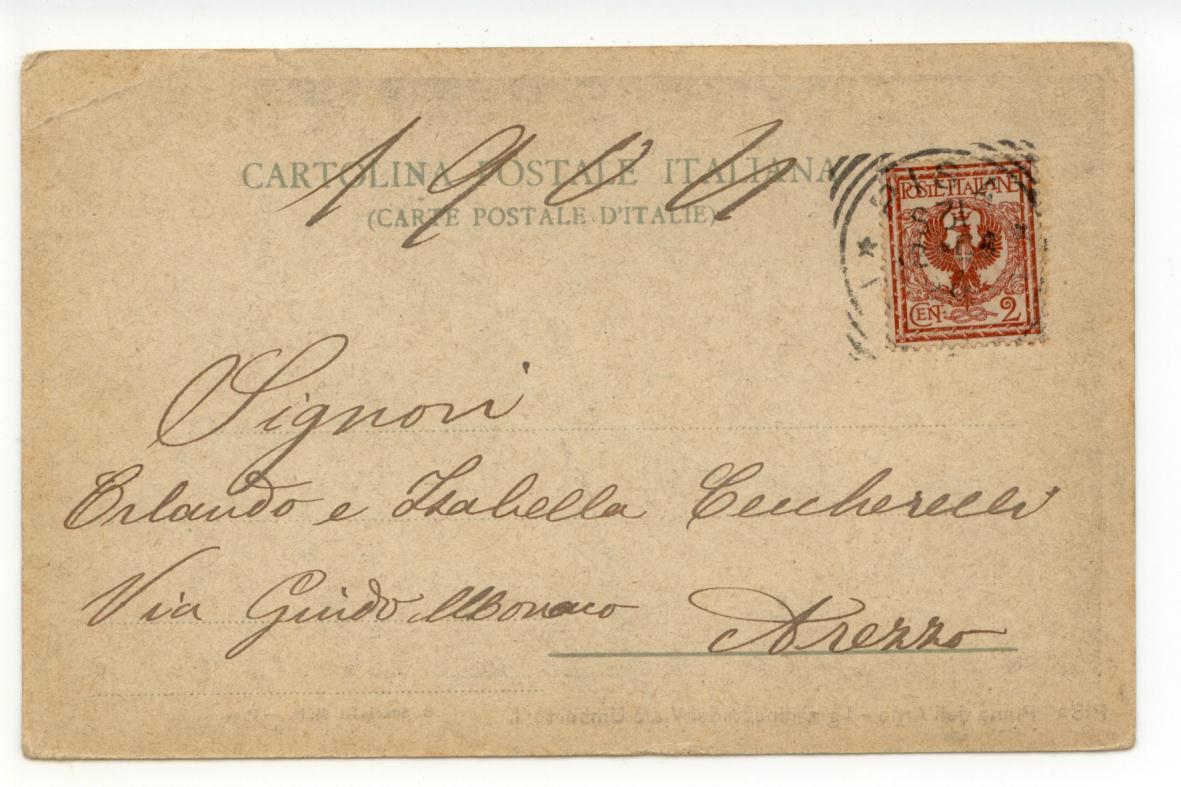 CARTOLINA POSTALE ITALIANA
(CARTE POSTALE D'ITALIE)
POSTE·ITALIANE
CEN: 2
Signori
Erlando e Isabella Ceccherelli
Via Guido Monaco
Arezzo